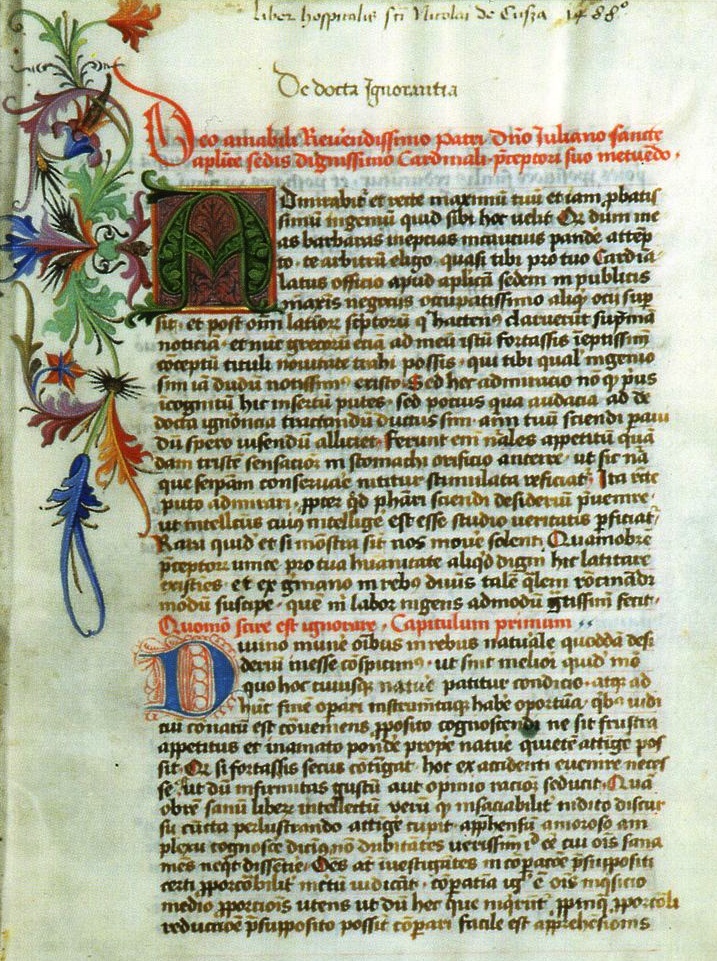 liber hospitalis sti Nicolai de Cusza 1488°
De docta Ignorantia
Deo amabili Reverendissimo Patri Dno Juliano sancte
aplice sedis dignissimo Cardinali preceptori suo metuedo.
Admirabit et recte maximu tuu et iam pbatis
simu ingeniu quid sibi hoc velit Qr dum me
as barbaras ineptias incautius pande attep
to, te arbitru eligo, quasi tibi pro tuo Cardia
latus officio apud aplica sedem in publicis
maxis negociis occupatissimo aliq ocii sup
sit, et post oim latior scptoru q hacten claruerut suprema
noticia, et nuc grecoru etia ad meu istu fortassis ieptissim
coceptu tituli novitate trahi possis, qui tibi qual ingenio
sim ia dudu notissim existo. Sed hec admiracio no q prius
icognitu hic insertu putes, sed pocius qua audacia ad de
docta ignorancia tractandu ductus sim, aim tuu sciendi
du spero visendu alliciet. Ferunt eni nales appetitu qua
dam triste sensacio in stomachi orificio anteire, ut sic na
que seipam conservare nititur stimulata reficiat, Ita recte
puto admirari, ppter qd phari sciendi desideriu pvenire,
ut intellcus cuius intellige est esse studio veritatis pficiat,
Rara quid et si mostra sit nos move solent. Quamobre
pceptor unice pro tua huanitate aliqd digni hic latitare
existies, et ex gmano in rebus divis tale qlem rocinandi
modu suscipe, que m labor ingens admodu gtissim fecit.
Quomo scire est ignorare, Capitulum primum
Divino mune oibus in rebus natuale quodda desi
deriu inesse cospicim, ut sint melior quid mo
quo hoc cuiusq nature patitur condicio, atq ad
hunc fine opari instrumtaq habe oportua, qbus iudi
ciu conatu est coveniens pposito cognoscendi ne sit frustra
appetitus et in amato ponde prope nature quiete attige pos
sit. Qr si fortassis secus cotigat, hoc ex accidenti evenire neces
se, ut du infirmitas gustu aut opinio racio seducit. Qua
obre sanu libere intellectu veru q insaciabilit indito discur
su cucta perlustrando attige cupit, apphensu amoroso am
plexu cognosce dicim, no dubitates verissim id ee cui ois sana
mes neqt dissentie. Oes at ivestigates in coparacoe psuppositi
certi pporcobilit incertu iudicat, coparatia igr e ois inqsicio
medio pporciois utens ut du hec que inqrunt ppinq pportoli
reductioe psupposito possit copari facile est apprehesiois